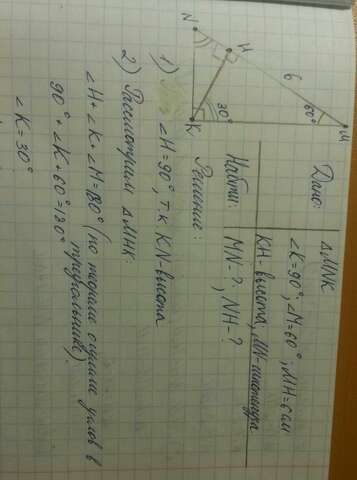 N
H
6
60°
M
30°
K
Дано:
△MNK
∠K=90°, ∠M=60°, MH=6 см
KH-высота, MN-гипотенуза
Найти: MN-?, NH-?
Решение:
1) ∠H=90°, т.к KN-высота
2) Рассмотрим △MHK:
∠H+∠K+∠M=180° (по теореме о сумме углов в
треугольнике).
90°+∠K+60°=180°
∠K=30°